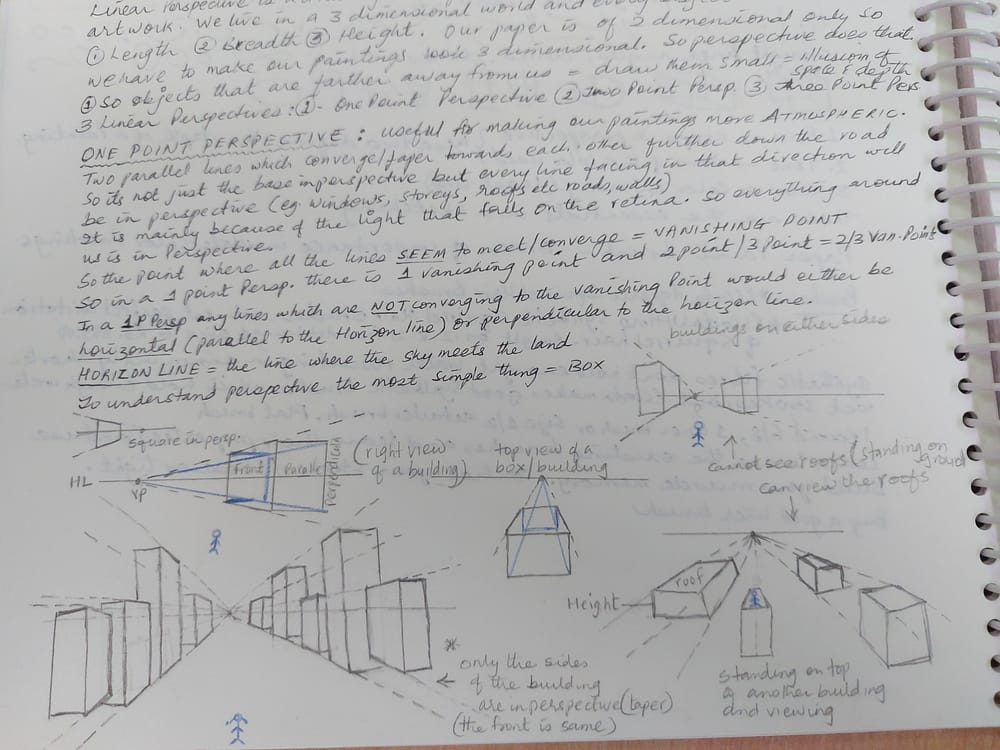 Linear Perspective is
artwork. We live in a 3 dimensional world and every
① Length ② Breadth ③ Height. Our paper is of 2 dimensional only so
we have to make our paintings look 3 dimensional. So perspective does that.
① So objects that are farther away from us = draw them small = illusion of
space & depth
3 Linear Perspectives: ①- One Point Perspective ② Two Point Persp. ③ Three Point Pers
ONE POINT PERSPECTIVE : useful for making our paintings more ATMOSPHERIC.
Two parallel lines which converge/taper towards each other further down the road
So its not just the base in perspective but every line facing in that direction will
be in perspective (eg windows, storeys, roofs etc roads, walls)
It is mainly because of the light that falls on the retina. So everything around
us is in Perspective.
So the point where all the lines SEEM to meet/converge = VANISHING POINT
So in a 1 point Persp. there is 1 vanishing point and 2 point/3 point = 2/3 Van. Point
In a 1P Persp any lines which are NOT converging to the vanishing Point would either be
horizontal (parallel to the Horizon line) or perpendicular to the horizon line.
HORIZON LINE = the line where the sky meets the land
To understand perspective the most simple thing = BOX
buildings on either sides
square in persp.
HL
VP
Front
Paralle
Perpendicular
(right view
of a building)
top view of a
box/building
cannot see roofs (standing on
ground
can view the roofs
roof
Height
*
only the sides
of the building
are in perspective (taper)
(the front is same)
standing on top
of another building
and viewing